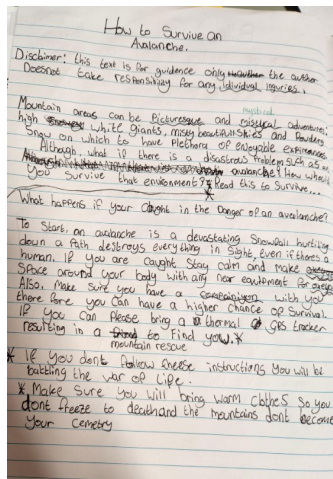 How to Survive an
Avalanche.
Disclaimer: this text is for guidence only the author
Doesnot take responsibility for any idividual Injuries.
mystical
Mountain areas can be Picturesque and misical adventures
high white giants, misty beautiful skies and Powdery
Snow on which to have Plethora of enjoyable experiences
Although, what if there is a disastrous Problem such as
avalanche? How would
you survive that environment? Read this to survive...
What happens if your Caught in the Danger of an avalanche?
To Start, an avalanche is a devastating Snowfall hurtling
down a Path destroys everything in Sight, even if theres a
human. If you are caught Stay calm and make
Space around your body with any near equitment for
Also, Make sure you have a with you
there fore you can have a higher chance of survival
If you can Please bring a thermal GPS tracker
resulting in a to Find you.*
mountain rescue
* If you dont follow these instructions you will be
battling the war of Life.
* Make Sure you will bring warm clothes so you
dont freeze to death and the mountains dont become
your cemetry